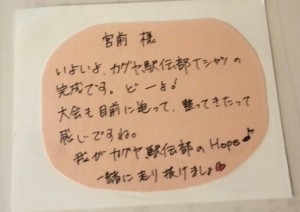 宮前 様
いよいよ、カグヤ駅伝部Tシャツの
完成です。どーよ♪
大会も目前に迫って、整ってきたって
感じですね。
我がカグヤ駅伝部のHope♪
一緒に走り抜けましょ♥